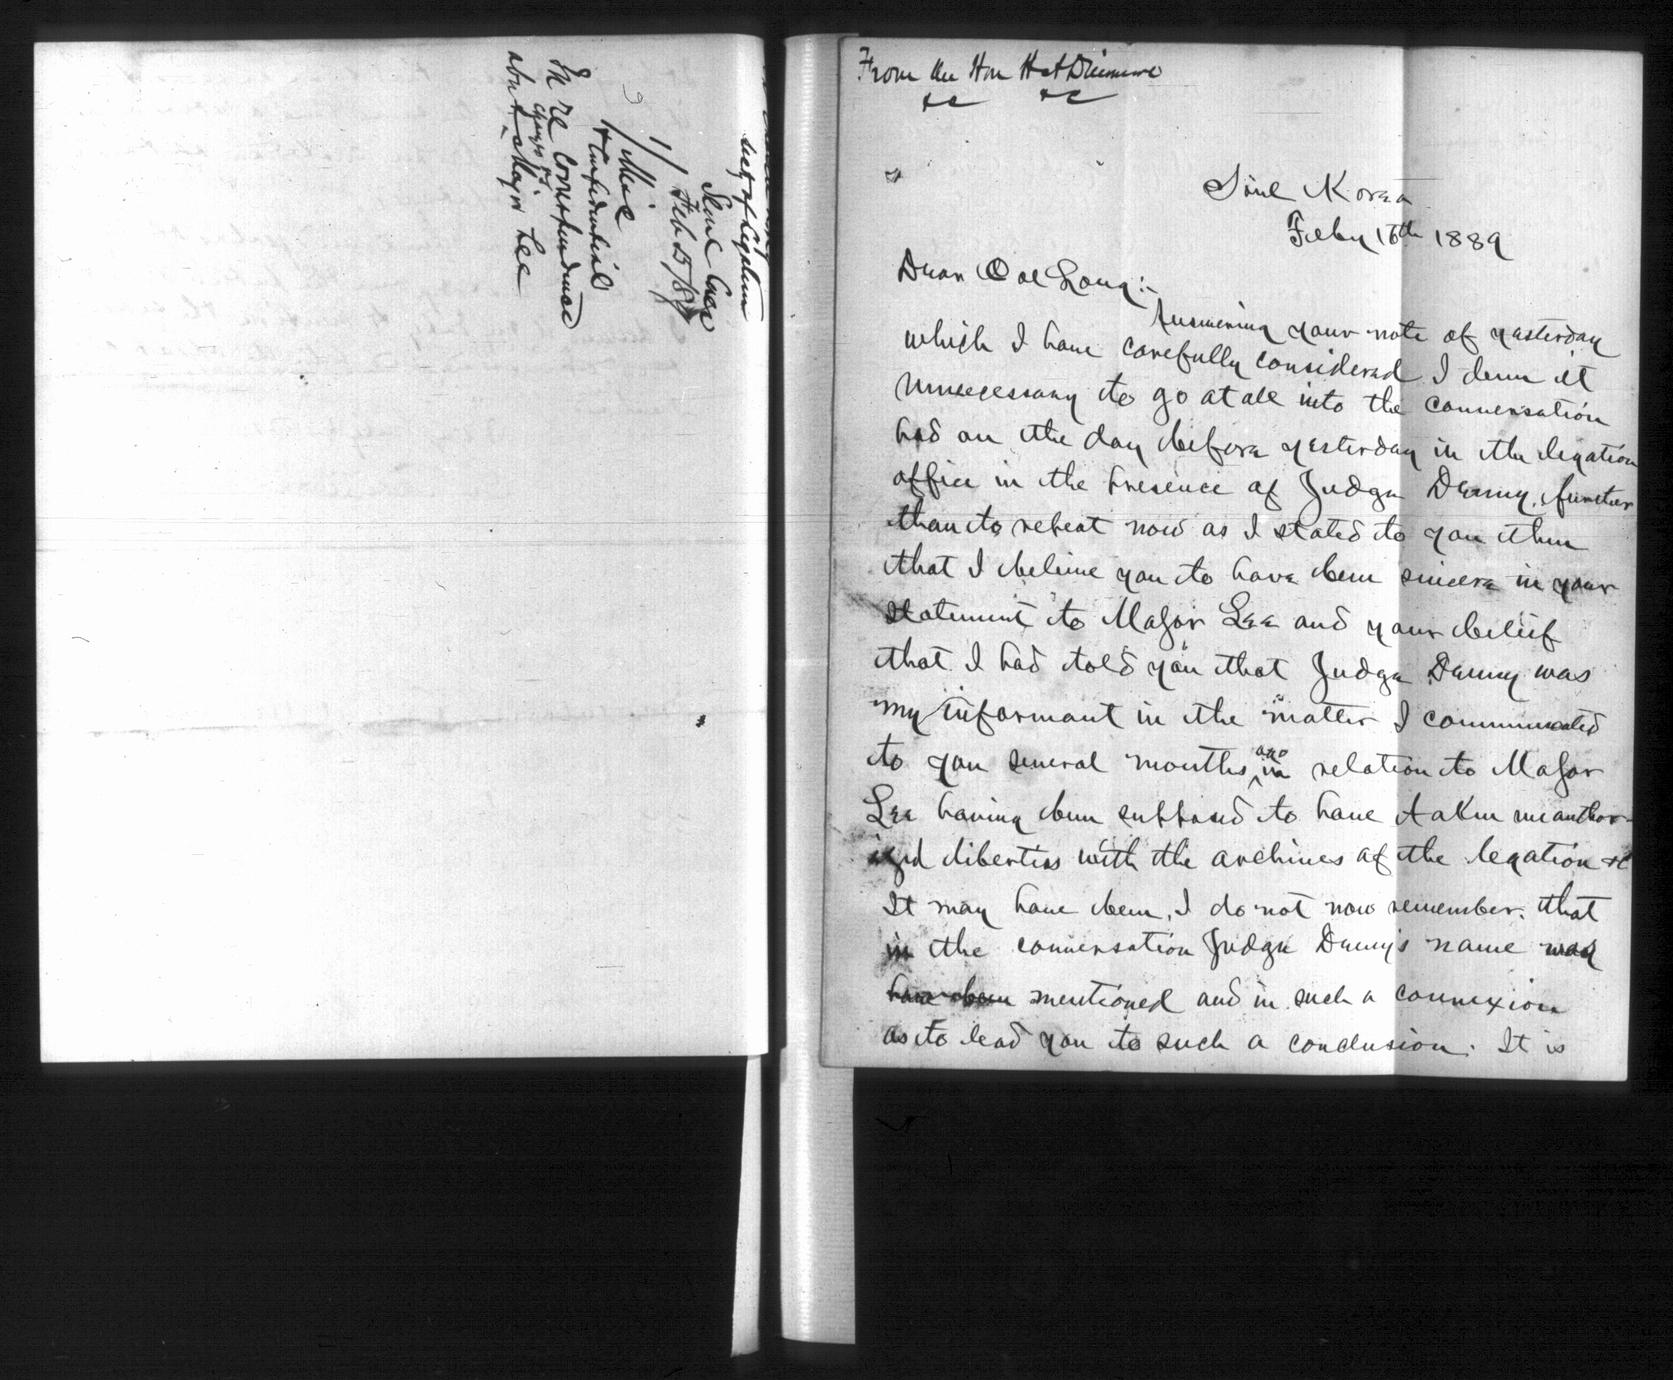 Secy of Legation
Seoul Corea
Feb 15/89
1/ Mie
& Confidential
In re Correspondence
charges of
abt Major Lee
From the Hon H A Dinsmore
&c &c
Söul Korea
Feby 16th 1889
Dear Col Long:-
Answering your note of yesterday
which I have carefully considered I deem it
unnecessary to go at all into the conversation
had on the day before yesterday in the legation
office in the presence of Judge Denny, further
than to repeat now as I stated to you then
that I believe you to have been sincere in your
statement to Major Lee and your belief
that I had told you that Judge Denny was
my informant in the matter I communicated
to you several months ago in relation to Major
Lee having been supposed to have taken unauthor-
ized liberties with the archives of the legation &c
It may have been, I do not now remember, that
in the conversation Judge Denny's name was
have been mentioned and in such a connexion
as to lead you to such a conclusion. It is